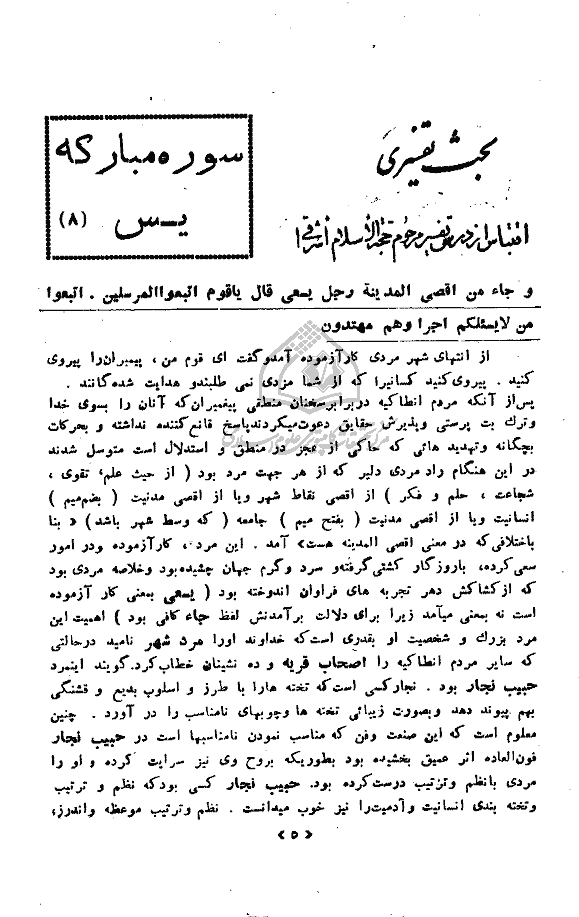 بحث تفسیری
اقتباس از درس تفسیر مرحوم حجةالاسلام اشراقی
سوره مبارکه
یس (۸)
و جاء من اقصی المدینة رجل یسعی قال یاقوم اتبعواالمرسلین . اتبعوا
من لایسئلکم اجرا وهم مهتدون
از انتهای شهر مردی کارآزموده آمدوگفت ای قوم من ، پیمبران‌را پیروی
کنید . پیروی‌کنید کسانیرا که از شما مزدی نمی طلبندو هدایت شده‌گانند .
پس‌از آنکه مردم انطاکیه دربرابرسخنان منطقی پیغمبران‌که آنان را بسوی خدا
وترك بت پرستی وپذیرش حقایق دعوت‌میکردندپاسخ قانع‌کننده نداشته و بحرکات
بچگانه وتهدید هائی که حاکی از عجز در منطق و استدلال است متوسل شدند
در این هنگام راد مردی دلیر که از هر جهت مرد بود ( از حیث علم، تقوی ،
شجاعت ، حلم و فکر ) از اقصی نقاط شهر ویا از اقصی مدنیت ( بضم‌میم )
انسانیت ویا از اقصی مدنیت ( بفتح میم ) جامعه ( که وسط شهر باشد ) « بنا
باختلافی‌که در معنی اقصی المدینه هست» آمد . این مرد ، کارآزموده ودر امور
سعی‌کرده، باروزگار کشتی‌گرفته‌و سرد وگرم جهان چشیده‌بود وخلاصه مردی بود
که ازکشاکش دهر تجربه های فراوان اندوخته بود ( یسعی بمعنی کار آزموده
است نه بمعنی میآمد زیرا برای دلالت برآمدنش لفظ جاء کافی بود ) اهمیت‌این
مرد بزرك و شخصیت او بقدری است‌که خداوند اورا مرد شهر نامید درحالتی
که سایر مردم انطاکیه را اصحاب قریه و ده نشینان خطاب‌کرد. گویند اینمرد
حبیب نجار بود . نجارکسی است‌که تخته هارا با طرز و اسلوب بدیع و قشنگی
بهم پیوند دهد وبصورت زیبائی تخته ها وچوبهای نامناسب را در آورد . چنین
معلوم است که این صنعت وفن که مناسب نمودن نامناسبها است در حبیب نجار
فوق‌العاده اثر عمیق بخشیده بود بطوریکه بروح وی نیز سرایت کرده و او را
مردی بانظم وترتیب درست‌کرده بود. حبیب نجار کسی بودکه نظم و ترتیب
وتخته بندی انسانیت وآدمیت‌را نیز خوب میدانست . نظم وترتیب موعظه واندرز،
«۵»